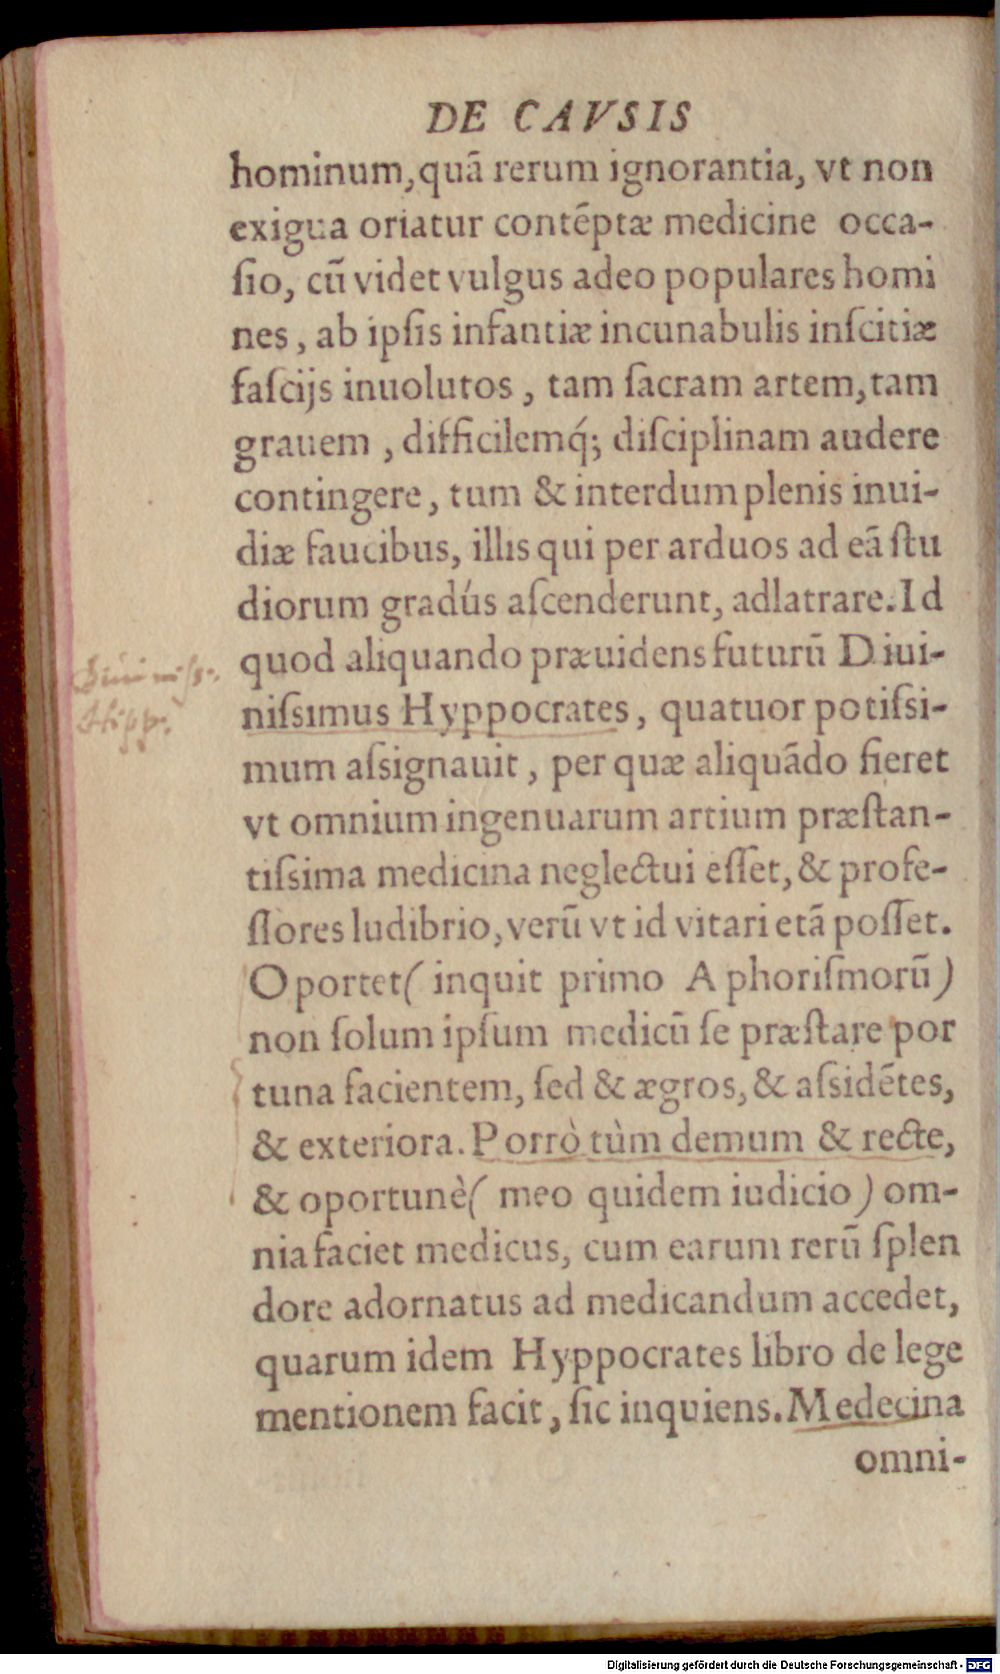 DE CAVSIS
hominum, quã rerum ignorantia, vt non
exigua oriatur contẽptæ medicine occa-
ſio, cũ videt vulgus adeo populares homi
nes, ab ipſis infantiæ incunabulis inſcitiæ
faſcijs inuolutos, tam ſacram artem, tam
grauem, difficilemq́; diſciplinam audere
contingere, tum & interdum plenis inui-
diæ faucibus, illis qui per arduos ad eã ſtu
diorum gradús aſcenderunt, adlatrare. Id
quod aliquando præuidens futurũ Diui-
niſsimus Hyppocrates, quatuor potiſsi-
mum aſsignauit, per quæ aliquãdo fieret
vt omnium ingenuarum artium præſtan-
tiſsima medicina neglectui eſſet, & profe-
ſſores ludibrio, verũ vt id vitari etã poſſet.
Oportet (inquit primo Aphoriſmorũ)
non ſolum ipſum medicũ ſe præſtare por
tuna facientem, ſed & ægros, & aſsidẽtes,
& exteriora. Porrò tùm demum & recte,
& oportunè (meo quidem iudicio) om-
nia faciet medicus, cum earum rerũ ſplen
dore adornatus ad medicandum accedet,
quarum idem Hyppocrates libro de lege
mentionem facit, ſic inquiens. Medecina
omni-
Diuiniſs.
Hipp.
Digitalisierung gefördert durch die Deutsche Forschungsgemeinschaft - DFG